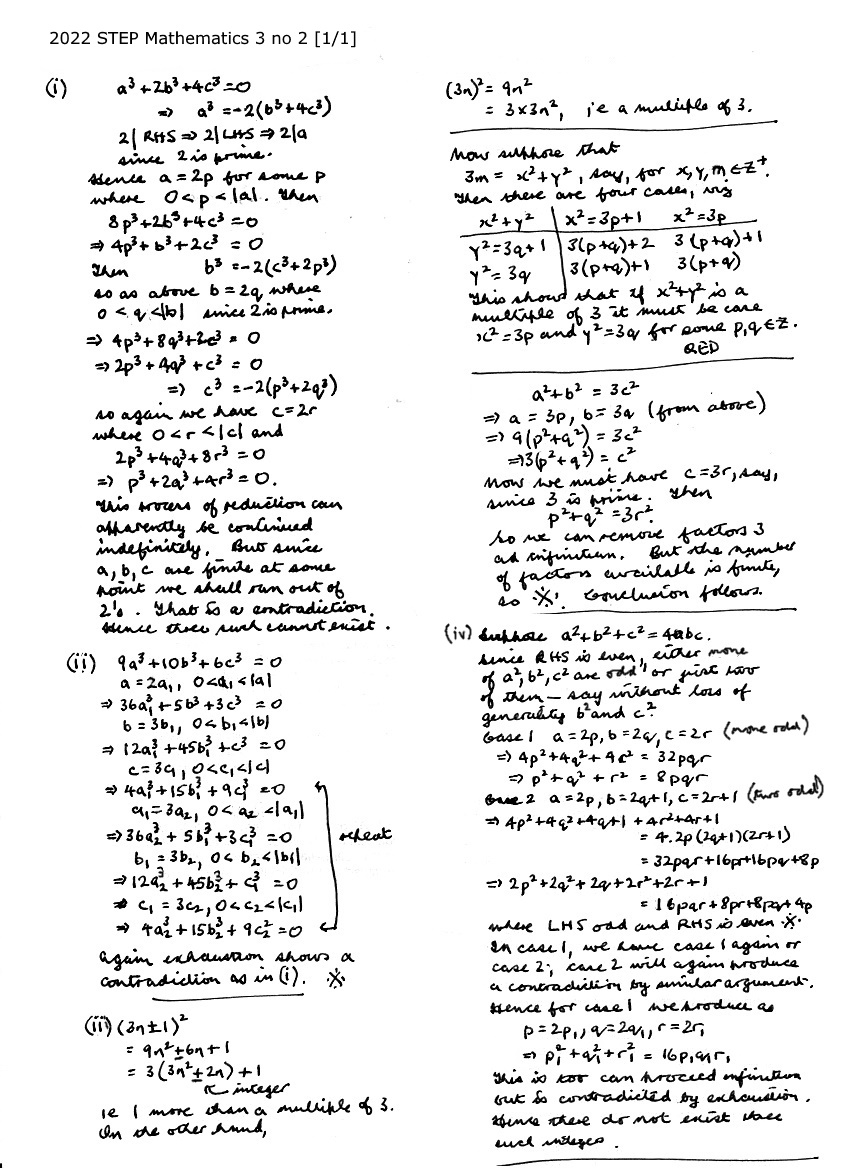 2022 STEP Mathematics 3 no 2 [1/1]
(i) a³ + 2b³ + 4c³ = 0
⇒ a³ = -2(b³ + 4c³)
2 | RHS ⇒ 2 | LHS ⇒ 2 | a
since 2 is prime.
Hence a = 2p for some p
where 0 < p < |a|. Then
8p³ + 2b³ + 4c³ = 0
⇒ 4p³ + b³ + 2c³ = 0
Then b³ = -2(c³ + 2p³)
so as above b = 2q where
0 < q < |b| since 2 is prime.
⇒ 4p³ + 8q³ + 2c³ = 0
⇒ 2p³ + 4q³ + c³ = 0
⇒ c³ = -2(p³ + 2q³)
so again we have c = 2r
where 0 < r < |c| and
2p³ + 4q³ + 8r³ = 0
⇒ p³ + 2q³ + 4r³ = 0.
This process of reduction can
apparently be continued
indefinitely. But since
a, b, c are finite at some
point we shall run out of
2's. That is a contradiction.
Hence three such cannot exist.
(ii) 9a³ + 10b³ + 6c³ = 0
a = 2a₁, 0 < a₁ < |a|
⇒ 36a₁³ + 5b³ + 3c³ = 0
b = 3b₁, 0 < b₁ < |b|
⇒ 12a₁³ + 45b₁³ + c³ = 0
c = 3c₁, 0 < c₁ < |c|
⇒ 4a₁³ + 15b₁³ + 9c₁³ = 0
a₁ = 3a₂, 0 < a₂ < |a₁|
⇒ 36a₂³ + 5b₁³ + 3c₁³ = 0
repeat
b₁ = 3b₂, 0 < b₂ < |b₁|
⇒ 12a₂³ + 45b₂³ + c₁³ = 0
⇒ c₁ = 3c₂, 0 < c₂ < |c₁|
⇒ 4a₂³ + 15b₂³ + 9c₂³ = 0
Again exhaustion shows a
contradiction as in (i). ※
(iii) (3n ± 1)²
= 9n² ± 6n + 1
= 3(3n² ± 2n) + 1
↖ integer
ie 1 more than a multiple of 3.
On the other hand,
(3n)² = 9n²
= 3 × 3n², ie a multiple of 3.
Now suppose that
3m = x² + y², say, for x, y, m ∈ Z⁺.
Then there are four cases, viz
x² + y² | x² = 3p + 1 x² = 3p
y² = 3q + 1 | 3(p+q) + 2 3(p+q) + 1
y² = 3q | 3(p+q) + 1 3(p+q)
This shows that if x² + y² is a
multiple of 3 it must be case
x² = 3p and y² = 3q for some p, q ∈ Z.
QED
a² + b² = 3c²
⇒ a = 3p, b = 3q (from above)
⇒ 9(p² + q²) = 3c²
⇒ 3(p² + q²) = c²
Now we must have c = 3r, say,
since 3 is prime. Then
p² + q² = 3r².
So we can remove factors 3
ad infinitum. But the number
of factors available is finite,
so ※. Conclusion follows.
(iv) Suppose a² + b² + c² = 4abc.
Since RHS is even, either none
of a², b², c² are odd or just two
of them – say without loss of
generality b² and c².
Case 1 a = 2p, b = 2q, c = 2r (none odd)
⇒ 4p² + 4q² + 4r² = 32pqr
⇒ p² + q² + r² = 8pqr
Case 2 a = 2p, b = 2q+1, c = 2r+1 (two odd)
⇒ 4p² + 4q² + 4q + 1 + 4r² + 4r + 1
= 4.2p(2q+1)(2r+1)
= 32pqr + 16pr + 16pq + 8p
⇒ 2p² + 2q² + 2q + 2r² + 2r + 1
= 16pqr + 8pr + 8pq + 4p
where LHS odd and RHS is even ※.
In case 1, we have case 1 again or
case 2; case 2 will again produce
a contradiction by similar argument.
Hence for case 1 we produce as
p = 2p₁, q = 2q₁, r = 2r₁
⇒ p₁² + q₁² + r₁² = 16p₁q₁r₁
This is too can proceed infinitum
but is contradicted by exhaustion.
Hence there do not exist three
such integers.